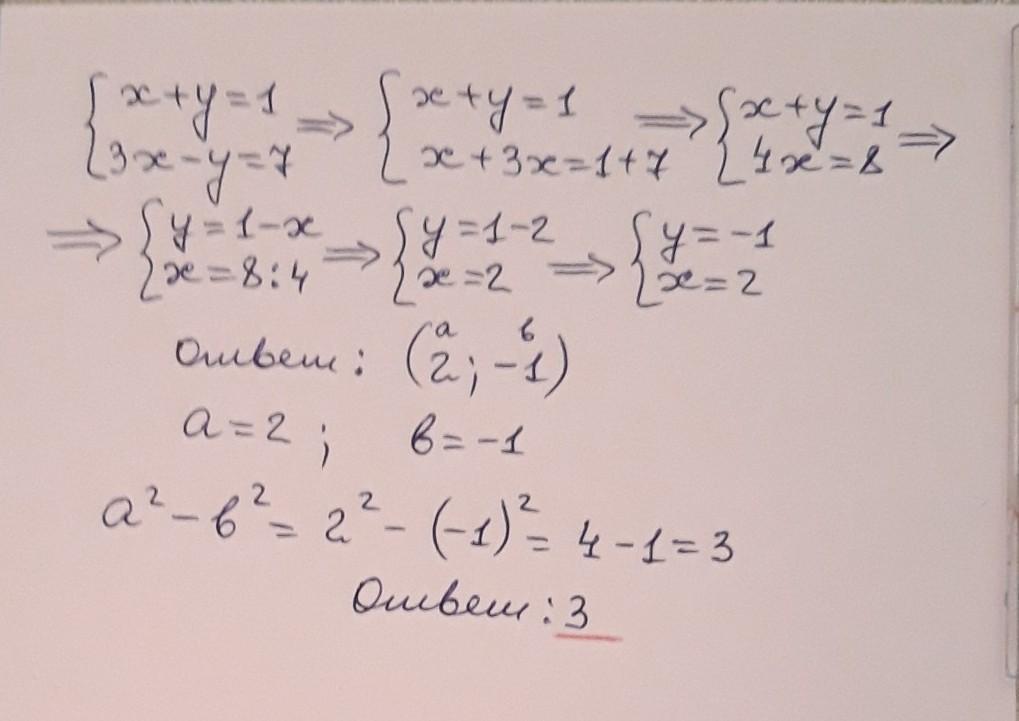 {x+y=1 {3x-y=7 ⇒ {x+y=1 {x+3x=1+7 ⇒ {x+y=1 {4x=8 ⇒
⇒ {y=1-x {x=8:4 ⇒ {y=1-2 {x=2 ⇒ {y=-1 {x=2
a в
Ответ: (2; -1)
a=2; в=-1
a²-в²= 2²-(-1)²= 4-1=3
Ответ: 3